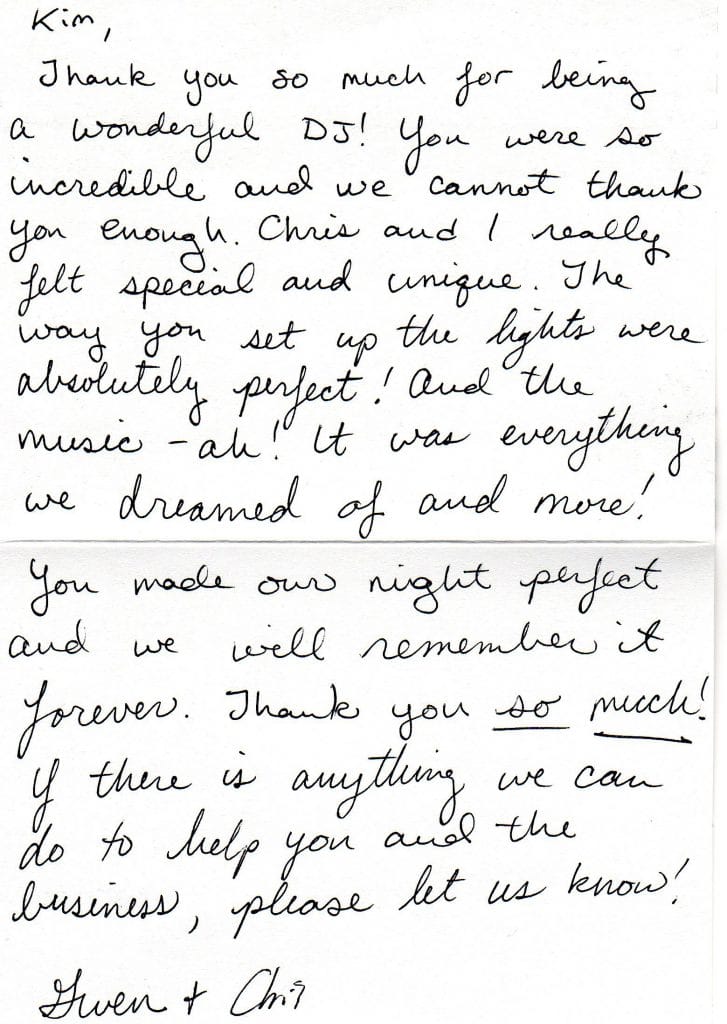 Kim,
Thank you so much for being
a wonderful DJ! You were so
incredible and we cannot thank
you enough. Chris and I really
felt special and unique. The
way you set up the lights were
absolutely perfect! And the
music - ah! It was everything
we dreamed of and more!
You made our night perfect
and we will remember it
forever. Thank you so much!
If there is anything we can
do to help you and the
business, please let us know!
Gwen + Chris